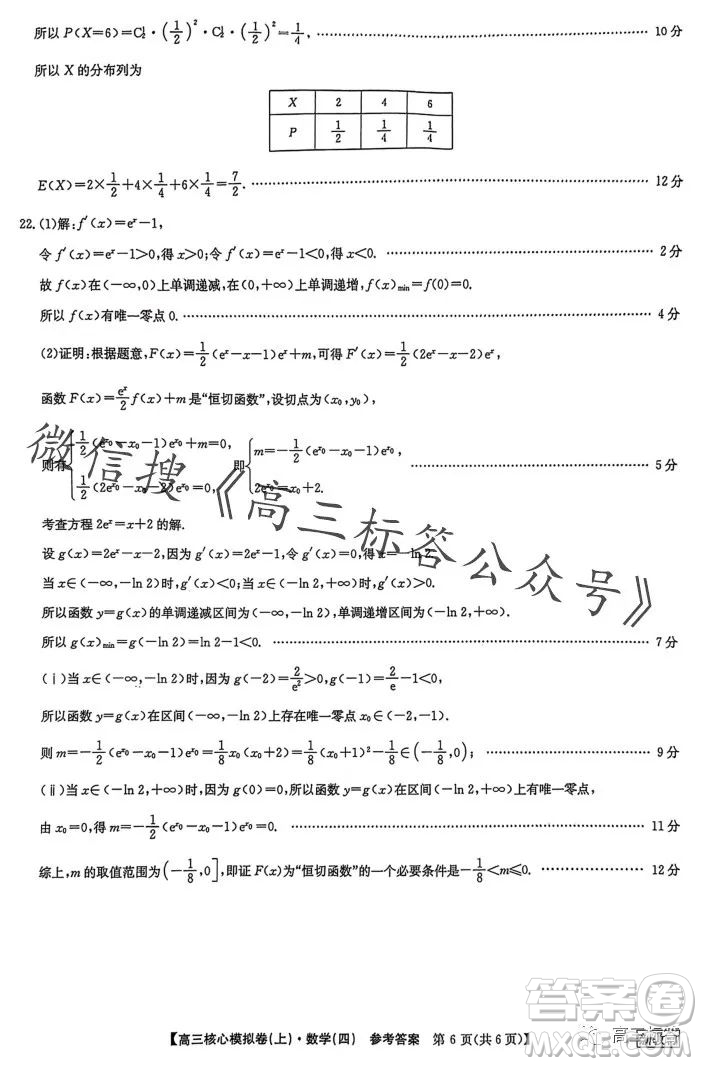 所以 P(X=6)=C₂¹·(1/2)²·C₂¹·(1/2)²=1/4, 10 分
所以 X 的分布列为
X 2 4 6
P 1/2 1/4 1/4
E(X)=2×1/2+4×1/4+6×1/4=7/2. 12 分
22.(1)解:f′(x)=eˣ−1,
令 f′(x)=eˣ−1>0,得 x>0;令 eˣ−1<0,得 x<0. 2 分
故 f(x)在(−∞,0)上单调递减,在(0,+∞)上单调递增,f(x)min=f(0)=0.
所以 f(x)有唯一零点 0. 4 分
(2)证明:根据题意,F(x)=1/2(eˣ−x−1)eˣ+m,可得 F′(x)=1/2(2eˣ−x−2)eˣ,
函数 F(x)=eˣ/2 f(x)+m 是“恒切函数”,设切点为(x₀,y₀),
则有{1/2(e^x₀−x₀−1)e^x₀+m=0, 1/2(2e^x₀−x₀−2)e^x₀=0, 即{m=−1/2(e^x₀−x₀−1)e^x₀, 2e^x₀=x₀+2. 5 分
考查方程 2eˣ=x+2 的解.
设 g(x)=2eˣ−x−2,因为 g′(x)=2eˣ−1,令 g′(x)=0,得 x=−ln 2.
当 x∈(−∞,−ln 2)时,g′(x)<0;当 x∈(−ln 2,+∞)时,g′(x)>0.
所以函数 y=g(x)的单调递减区间为(−∞,−ln 2),单调递增区间为(−ln 2,+∞).
所以 g(x)min=g(−ln 2)=ln 2−1<0. 7 分
(ⅰ)当 x∈(−∞,−ln 2)时,因为 g(−2)=2/e²>0,g(−1)=2/e−1<0,
所以函数 y=g(x)在区间(−∞,−ln 2)上存在唯一零点 x₀∈(−2,−1).
则 m=−1/2(e^x₀−x₀−1)e^x₀=1/8x₀(x₀+2)=1/8(x₀+1)²−1/8∈(−1/8,0); 9 分
(ⅱ)当 x∈(−ln 2,+∞)时,因为 g(0)=0,所以函数 y=g(x)在区间(−ln 2,+∞)上有唯一零点,
由 x₀=0,得 m=−1/2(e^x₀−x₀−1)e^x₀=0. 11 分
综上,m 的取值范围为(−1/8,0],即证 F(x)为“恒切函数”的一个必要条件是−1/8<m≤0. 12 分
微信搜《高三标答公众号》
【高三核心模拟卷(上)·数学(四) 参考答案 第 6 页(共 6 页)】
答案圈